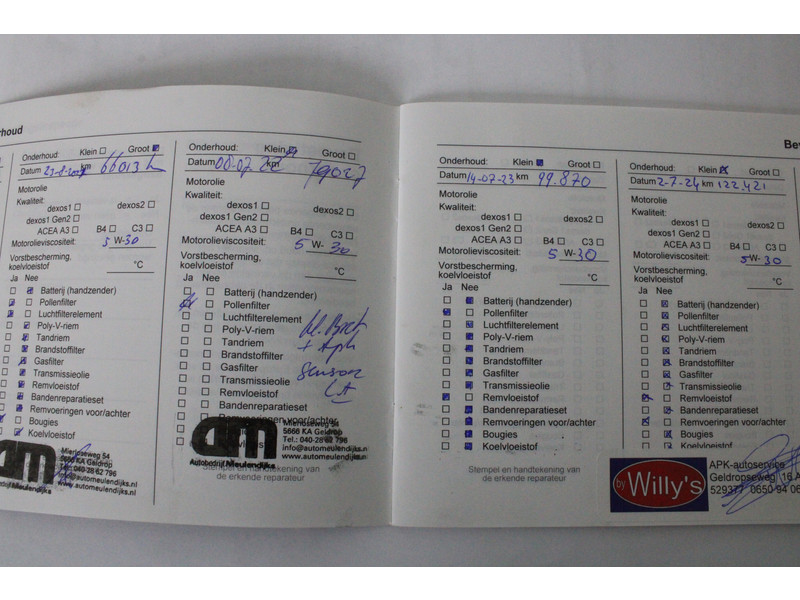 rhoud
Onderhoud: Klein Groot
Datum km 66013
Motorolie
Kwaliteit:
dexos1 dexos2
dexos1 Gen2
ACEA A3 B4 C3
Motorolieviscositeit: 5 W-30
Vorstbescherming,
koelvloeistof °C
Ja Nee
Batterij (handzender)
Pollenfilter
Luchtfilterelement
Poly-V-riem
Tandriem
Brandstoffilter
Gasfilter
Transmissieolie
Remvloeistof
Bandenreparatieset
Remvoeringen voor/achter
Bougies
Koelvloeistof
am
Mierloseweg 54
5666 KA Geldrop
Tel.: 040-28 62 796
info@automeulendijks.nl
www.automeulendijks.nl
Onderhoud: Klein Groot
Datum 08-07 22 km 79027
Motorolie
Kwaliteit:
dexos1 dexos2
dexos1 Gen2
ACEA A3 B4 C3
Motorolieviscositeit: 5 W- 30
Vorstbescherming,
koelvloeistof °C
Ja Nee
Batterij (handzender)
Pollenfilter
Luchtfilterelement
Poly-V-riem
Tandriem
Brandstoffilter
Gasfilter
Transmissieolie
Remvloeistof
Bandenreparatieset
Remvoeringen voor/achter
+ Apk
sensor
LA
am
Autobedrijf Meulendijks
Mierloseweg 54
5666 KA Geldrop
Tel.: 040-28 62 796
info@automeulendijks.nl
www.automeulendijks.nl
Stempel en handtekening van
de erkende reparateur
Onderhoud: Klein Groot
Datum 14-07-23 km 99.870
Motorolie
Kwaliteit:
dexos1 dexos2
dexos1 Gen2
ACEA A3 B4 C3
Motorolieviscositeit: 5 W-30
Vorstbescherming,
koelvloeistof °C
Ja Nee
Batterij (handzender)
Pollenfilter
Luchtfilterelement
Poly-V-riem
Tandriem
Brandstoffilter
Gasfilter
Transmissieolie
Remvloeistof
Bandenreparatieset
Remvoeringen voor/achter
Bougies
Koelvloeistof
Stempel en handtekening van
de erkende reparateur
Be
Onderhoud: Klein Groot
Datum 2-7-24 km 122.421
Motorolie
Kwaliteit:
dexos1 dexos2
dexos1 Gen2
ACEA A3 B4 C3
Motorolieviscositeit: 5 W- 30
Vorstbescherming,
koelvloeistof °C
Ja Nee
Batterij (handzender)
Pollenfilter
Luchtfilterelement
Poly-V-riem
Tandriem
Brandstoffilter
Gasfilter
Transmissieolie
Remvloeistof
Bandenreparatieset
Remvoeringen voor/achter
Bougies
Koelvloeistof
by Willy's
APK-autoservice
Geldropseweg 16 A
529377 0650 94 06